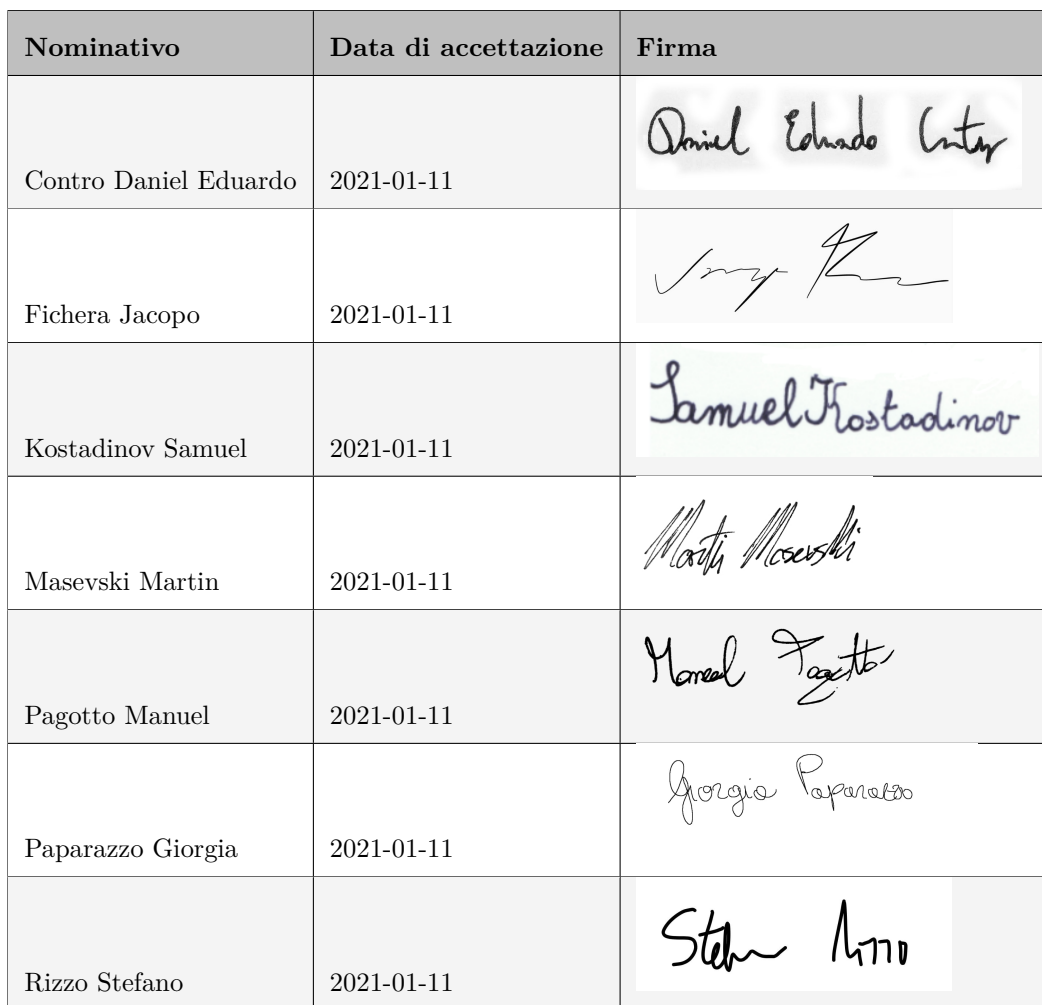 Nominativo Data di accettazione Firma
Contro Daniel Eduardo 2021-01-11 Daniel Eduardo Contro
Fichera Jacopo 2021-01-11
Kostadinov Samuel 2021-01-11 Samuel Kostadinov
Masevski Martin 2021-01-11 Martin Masevski
Pagotto Manuel 2021-01-11 Manuel Pagotto
Paparazzo Giorgia 2021-01-11 Giorgia Paparazzo
Rizzo Stefano 2021-01-11 Stefano Rizzo